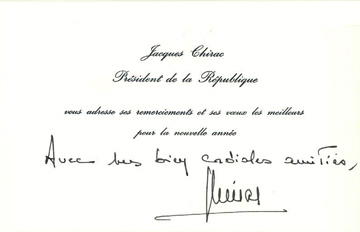 Jacques Chirac
Président de la République
vous adresse ses remerciements et ses vœux les meilleurs
pour la nouvelle année
Avec mes bien cordiales amitiés,